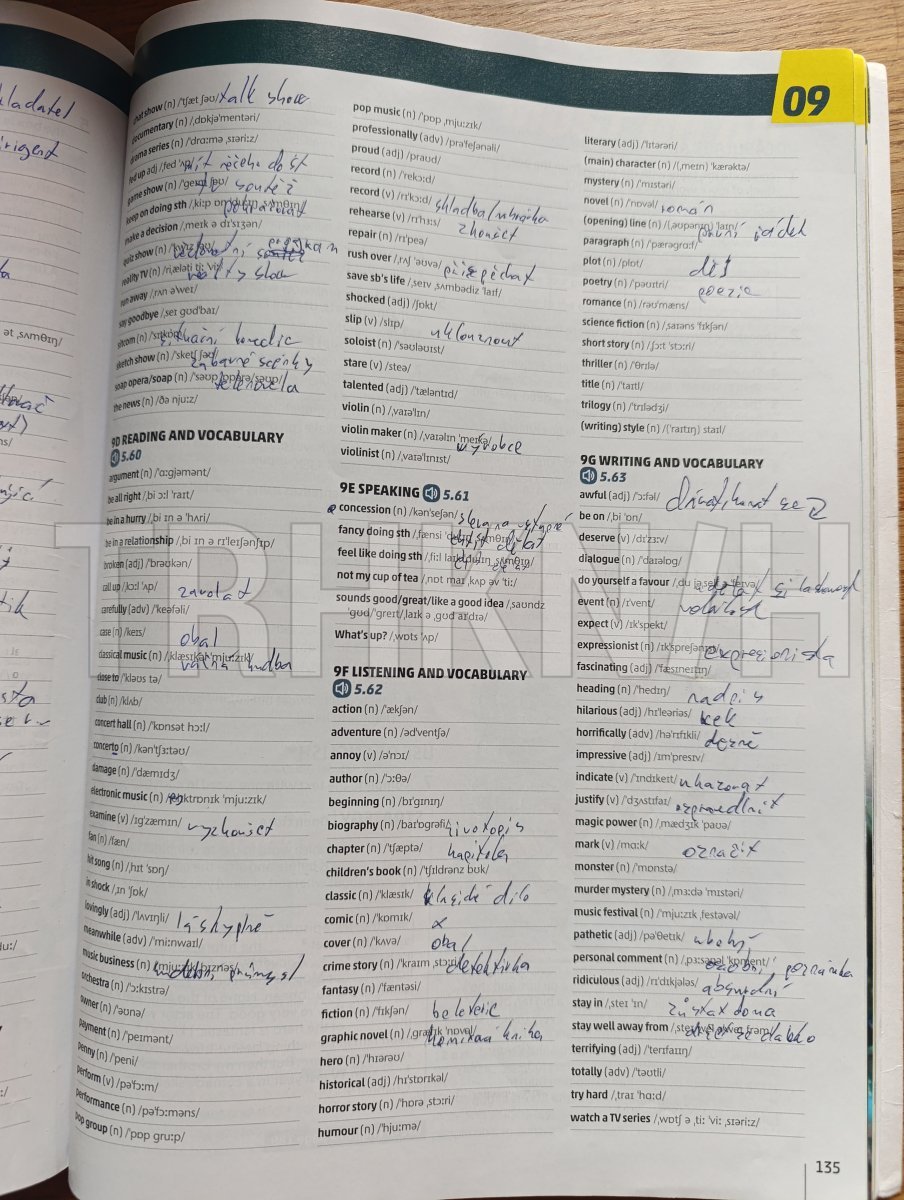 09
chat show (n) /ˈtʃæt ʃəʊ/ talk show
documentary (n) /ˌdɒkjəˈmentəri/
drama series (n) /ˈdrɑːmə ˌsɪəriːz/
fed up adj /ˌfed ˈʌp/ mít něčeho dost
game show (n) /ˈɡeɪm ʃəʊ/ tv soutěž
keep on doing sth /ˌkiːp ɒn ˈduːɪŋ ˌsʌmθɪŋ/ pokračovat
make a decision /ˌmeɪk ə dɪˈsɪʒən/
quiz show (n) /ˈkwɪz ʃəʊ/ vědomostní soutěž
reality TV (n) /riˌæləti tiː ˈviː/ reality show
run away /ˌrʌn əˈweɪ/
say goodbye /ˌseɪ ɡʊdˈbaɪ/
sitcom (n) /ˈsɪtkɒm/ situační komedie
sketch show (n) /ˈsketʃ ʃəʊ/ zábavné scénky
soap opera/soap (n) /ˈsəʊp ˌɒpərə/səʊp/ telenovela
the news (n) /ðə njuːz/
9D READING AND VOCABULARY
5.60
argument (n) /ˈɑːɡjəmənt/
be all right /ˌbi ɔːl ˈraɪt/
be in a hurry /ˌbi ɪn ə ˈhʌri/
be in a relationship /ˌbi ɪn ə rɪˈleɪʃənʃɪp/
broken (adj) /ˈbrəʊkən/
call up /ˌkɔːl ˈʌp/ zavolat
carefully (adv) /ˈkeəfəli/
case (n) /keɪs/ obal
classical music (n) /ˌklæsɪkəl ˈmjuːzɪk/ vážná hudba
close to /ˈkləʊs tə/
club (n) /klʌb/
concert hall (n) /ˈkɒnsət hɔːl/
concerto (n) /kənˈtʃɜːtəʊ/
damage (n) /ˈdæmɪdʒ/
electronic music (n) /elɪktrɒnɪk ˈmjuːzɪk/
examine (v) /ɪɡˈzæmɪn/ vyzkoušet
fan (n) /fæn/
hit song (n) /ˌhɪt ˈsɒŋ/
in shock /ˌɪn ˈʃɒk/
lovingly (adj) /ˈlʌvɪŋli/ láskyplně
meanwhile (adv) /ˈmiːnwaɪl/
music business (n) /ˈmjuːzɪk ˌbɪznəs/ hudební průmysl
orchestra (n) /ˈɔːkɪstrə/
owner (n) /ˈəʊnə/
payment (n) /ˈpeɪmənt/
penny (n) /ˈpeni/
perform (v) /pəˈfɔːm/
performance (n) /pəˈfɔːməns/
pop group (n) /ˈpɒp ɡruːp/
pop music (n) /ˈpɒp ˌmjuːzɪk/
professionally (adv) /prəˈfeʃənəli/
proud (adj) /praʊd/
record (n) /ˈrekɔːd/
record (v) /rɪˈkɔːd/ skladba/nahrávka
rehearse (v) /rɪˈhɜːs/ zkoušet
repair (n) /rɪˈpeə/
rush over /ˌrʌʃ ˈəʊvə/ přispěchat
save sb's life /ˌseɪv ˌsʌmbədiz ˈlaɪf/
shocked (adj) /ʃɒkt/
slip (v) /slɪp/ uklouznout
soloist (n) /ˈsəʊləʊɪst/
stare (v) /steə/
talented (adj) /ˈtæləntɪd/
violin (n) /ˌvaɪəˈlɪn/
violin maker (n) /ˌvaɪəlɪn ˈmeɪkə/ výrobce
violinist (n) /ˌvaɪəˈlɪnɪst/
9E SPEAKING 5.61
concession (n) /kənˈseʃən/ sleva na vstupné
fancy doing sth /ˌfænsi ˈduːɪŋ ˌsʌmθɪŋ/ chtít dělat
feel like doing sth /ˌfiːl laɪk ˈduːɪŋ ˌsʌmθɪŋ/
not my cup of tea /ˌnɒt maɪ ˌkʌp əv ˈtiː/
sounds good/great/like a good idea /ˌsaʊndz
ˈɡʊd/ˈɡreɪt/ˌlaɪk ə ˌɡʊd aɪˈdɪə/
What's up? /ˌwɒts ˈʌp/
9F LISTENING AND VOCABULARY
5.62
action (n) /ˈækʃən/
adventure (n) /ədˈventʃə/
annoy (v) /əˈnɔɪ/
author (n) /ˈɔːθə/
beginning (n) /bɪˈɡɪnɪŋ/
biography (n) /baɪˈɒɡrəfi/ životopis
chapter (n) /ˈtʃæptə/ kapitola
children's book (n) /ˈtʃɪldrənz bʊk/
classic (n) /ˈklæsɪk/ klasické dílo
comic (n) /ˈkɒmɪk/
cover (n) /ˈkʌvə/ obal
crime story (n) /ˈkraɪm ˌstɔːri/ detektivka
fantasy (n) /ˈfæntəsi/
fiction (n) /ˈfɪkʃən/ beletrie
graphic novel (n) /ˌɡræfɪk ˈnɒvəl/ komiksová kniha
hero (n) /ˈhɪərəʊ/
historical (adj) /hɪˈstɒrɪkəl/
horror story (n) /ˈhɒrə ˌstɔːri/
humour (n) /ˈhjuːmə/
literary (adj) /ˈlɪtərəri/
(main) character (n) /(ˌmeɪn) ˈkærəktə/
mystery (n) /ˈmɪstəri/
novel (n) /ˈnɒvəl/ román
(opening) line (n) /(ˌəʊpənɪŋ) ˈlaɪn/ první řádek
paragraph (n) /ˈpærəɡrɑːf/
plot (n) /plɒt/ děj
poetry (n) /ˈpəʊɪtri/ poezie
romance (n) /rəʊˈmæns/
science fiction (n) /ˌsaɪəns ˈfɪkʃən/
short story (n) /ˌʃɔːt ˈstɔːri/
thriller (n) /ˈθrɪlə/
title (n) /ˈtaɪtl/
trilogy (n) /ˈtrɪlədʒi/
(writing) style (n) /(ˈraɪtɪŋ) staɪl/
9G WRITING AND VOCABULARY
5.63
awful (adj) /ˈɔːfəl/
be on /ˌbi ˈɒn/
deserve (v) /dɪˈzɜːv/
dialogue (n) /ˈdaɪəlɒɡ/
do yourself a favour /ˌdu jəself ə ˈfeɪvə/ udělat si laskavost
event (n) /ɪˈvent/ událost
expect (v) /ɪkˈspekt/
expressionist (n) /ɪkˈspreʃənɪst/ expresionista
fascinating (adj) /ˈfæsɪneɪtɪŋ/
heading (n) /ˈhedɪŋ/ nadpis
hilarious (adj) /hɪˈleəriəs/ kek
horrifically (adv) /həˈrɪfɪkli/ děsně
impressive (adj) /ɪmˈpresɪv/
indicate (v) /ˈɪndɪkeɪt/ ukazovat
justify (v) /ˈdʒʌstɪfaɪ/ ospravedlnit
magic power (n) /ˌmædʒɪk ˈpaʊə/
mark (v) /mɑːk/ označit
monster (n) /ˈmɒnstə/
murder mystery (n) /ˌmɜːdə ˈmɪstəri/
music festival (n) /ˈmjuːzɪk ˌfestəvəl/
pathetic (adj) /pəˈθetɪk/ ubohý
personal comment (n) /ˌpɜːsənəl ˈkɒment/ osobní poznámka
ridiculous (adj) /rɪˈdɪkjələs/ absurdní
stay in /ˌsteɪ ˈɪn/ zůstat doma
stay well away from /ˌsteɪ wel əˈweɪ frəm/ držet se daleko
terrifying (adj) /ˈterɪfaɪɪŋ/
totally (adv) /ˈtəʊtli/
try hard /ˌtraɪ ˈhɑːd/
watch a TV series /ˌwɒtʃ ə ˌtiː ˈviː ˌsɪəriːz/
135
TRHKNIH